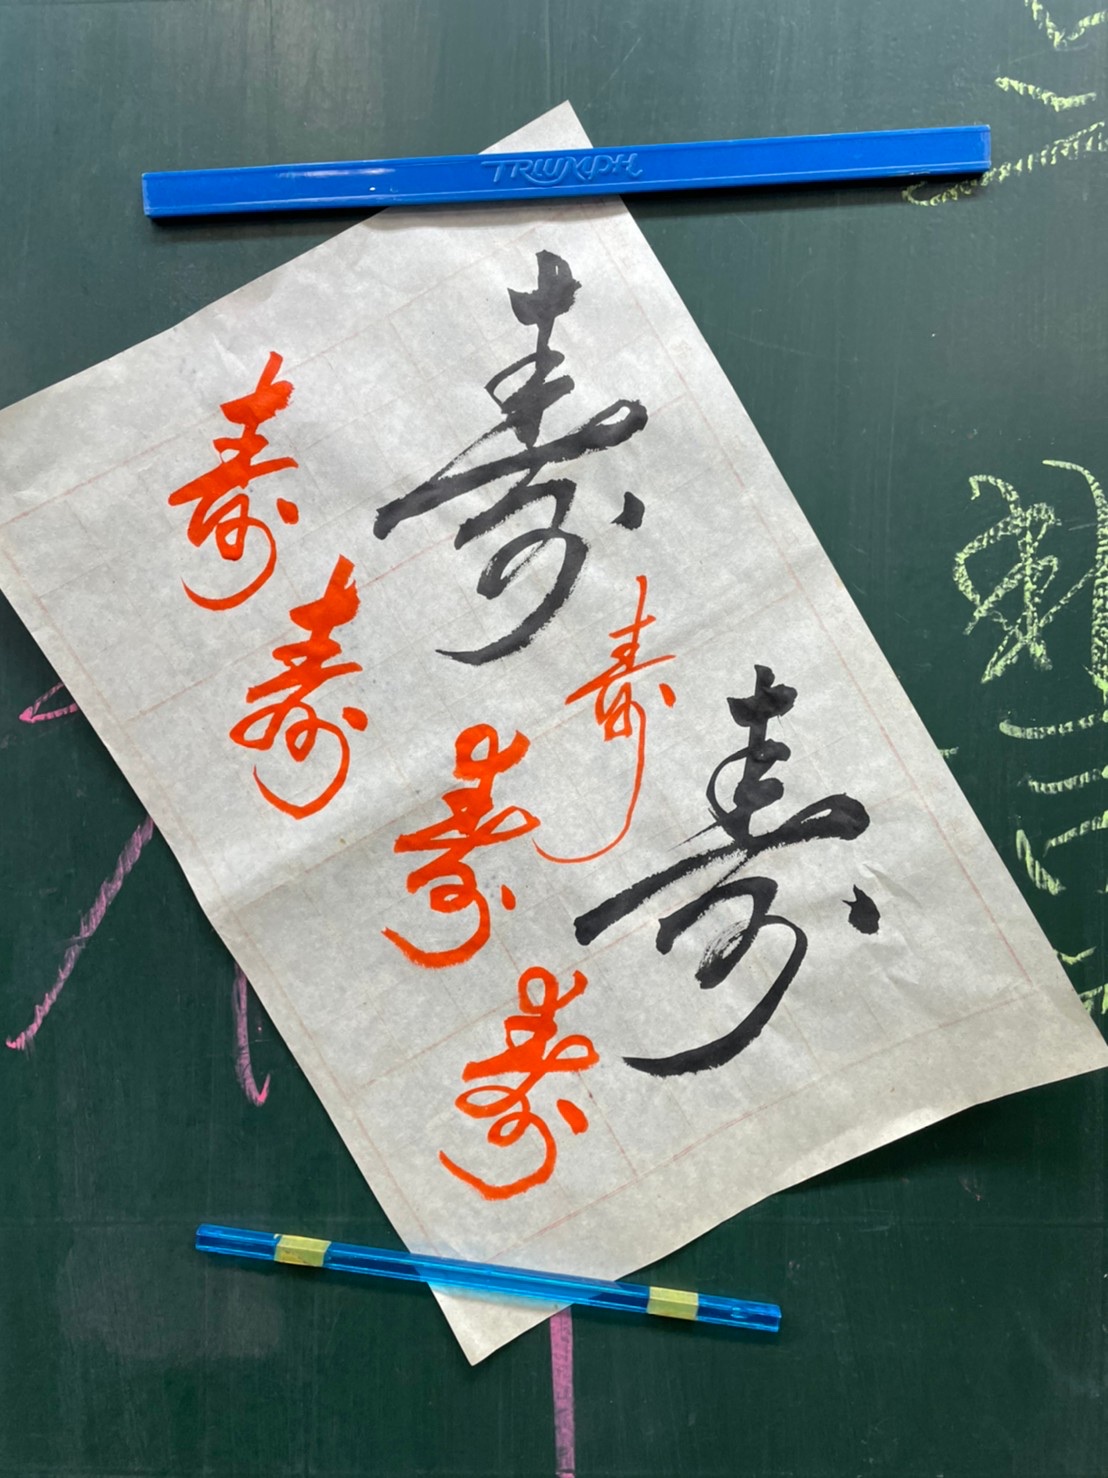 TRIUMPH
壽
壽
壽
壽
壽
壽
壽